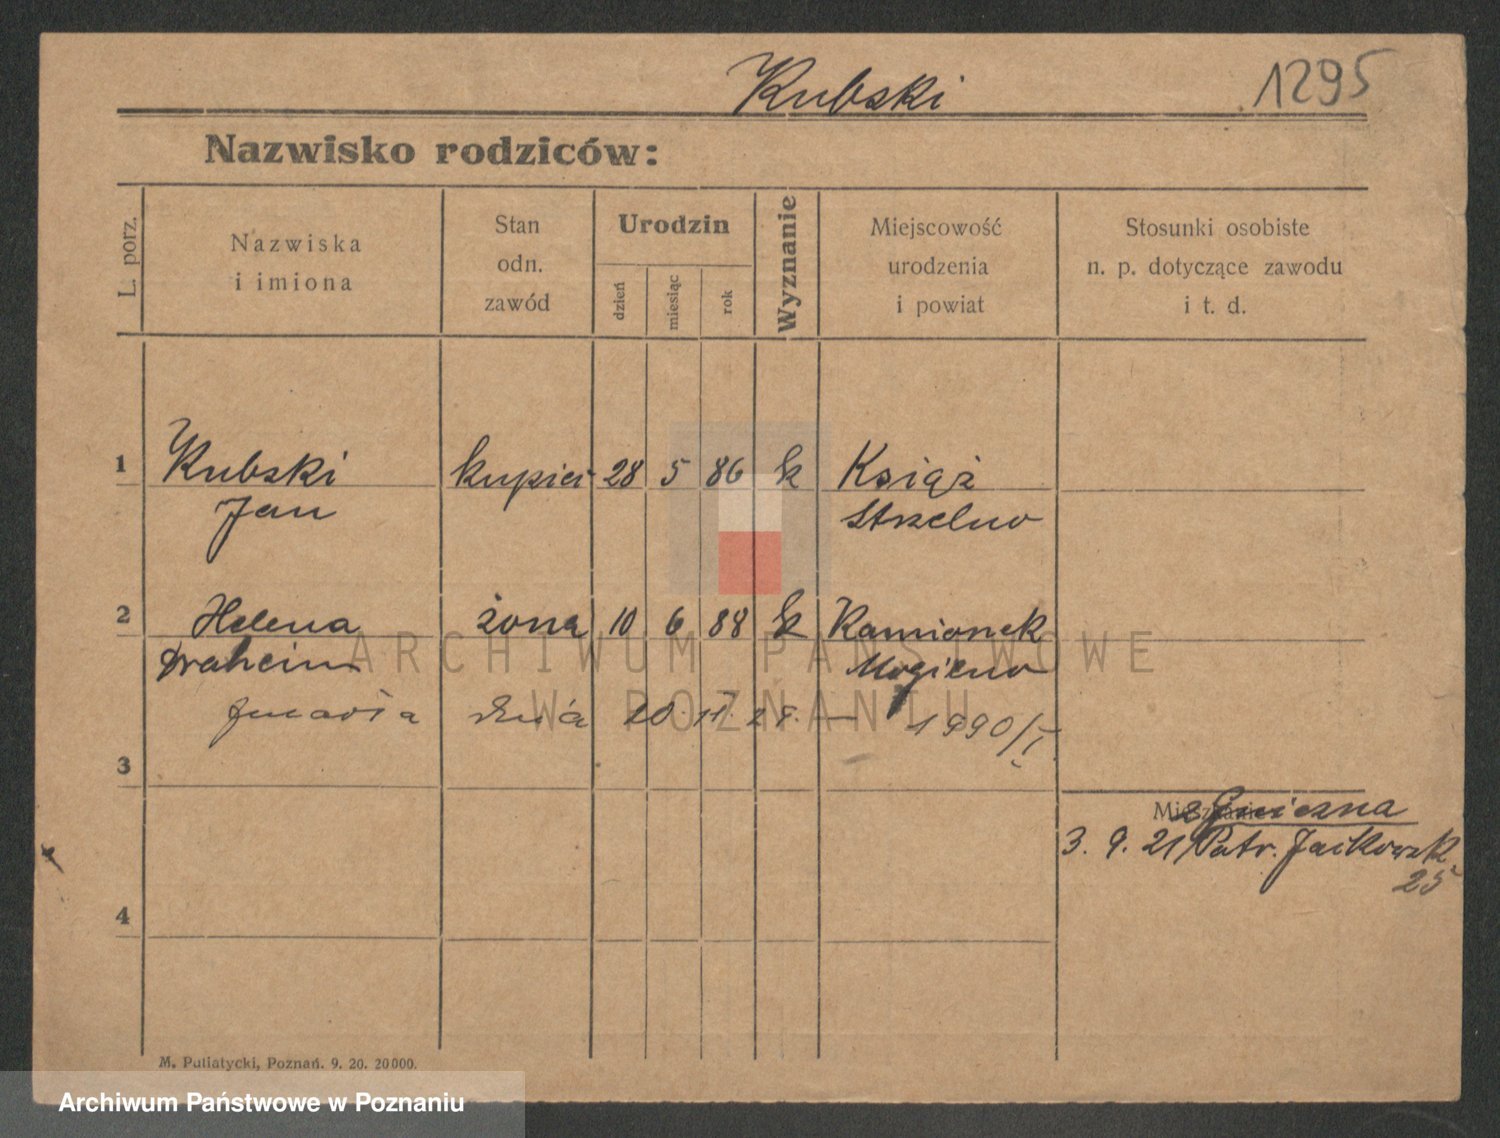 Kubski
1295
Nazwisko rodziców:
L. porz.
Nazwiska
i imiona
Stan
odn.
zawód
Urodzin
dzień
miesiąc
rok
Wyznanie
Miejscowość
urodzenia
i powiat
Stosunki osobiste
n. p. dotyczące zawodu
i t. d.
1 Kubski kupiec 28 5 86 k Książ
Jan Strzelno
2 Helena żona 10 6 88 k Kamionek
Draheim Mogilno
zmarła dnia 20. 11. 1990/I
3
z Gniezna
3. 9. 21 Patr. Jackowsk
25
4
M. Putiatycki, Poznań. 9. 20. 20000.
ARCHIWUM PAŃSTWOWE
W POZNANIU
Archiwum Państwowe w Poznaniu